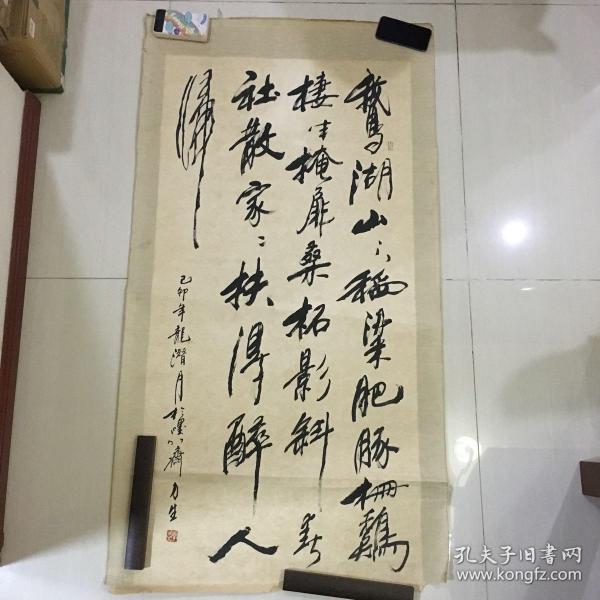 鵝湖山下稻粱肥豚柵鷄
棲半掩扉桑柘影斜春
社散家〻扶得醉人
歸
己卯年龍潛月於 齋 力生
孔夫子旧书网
www.kongfz.com